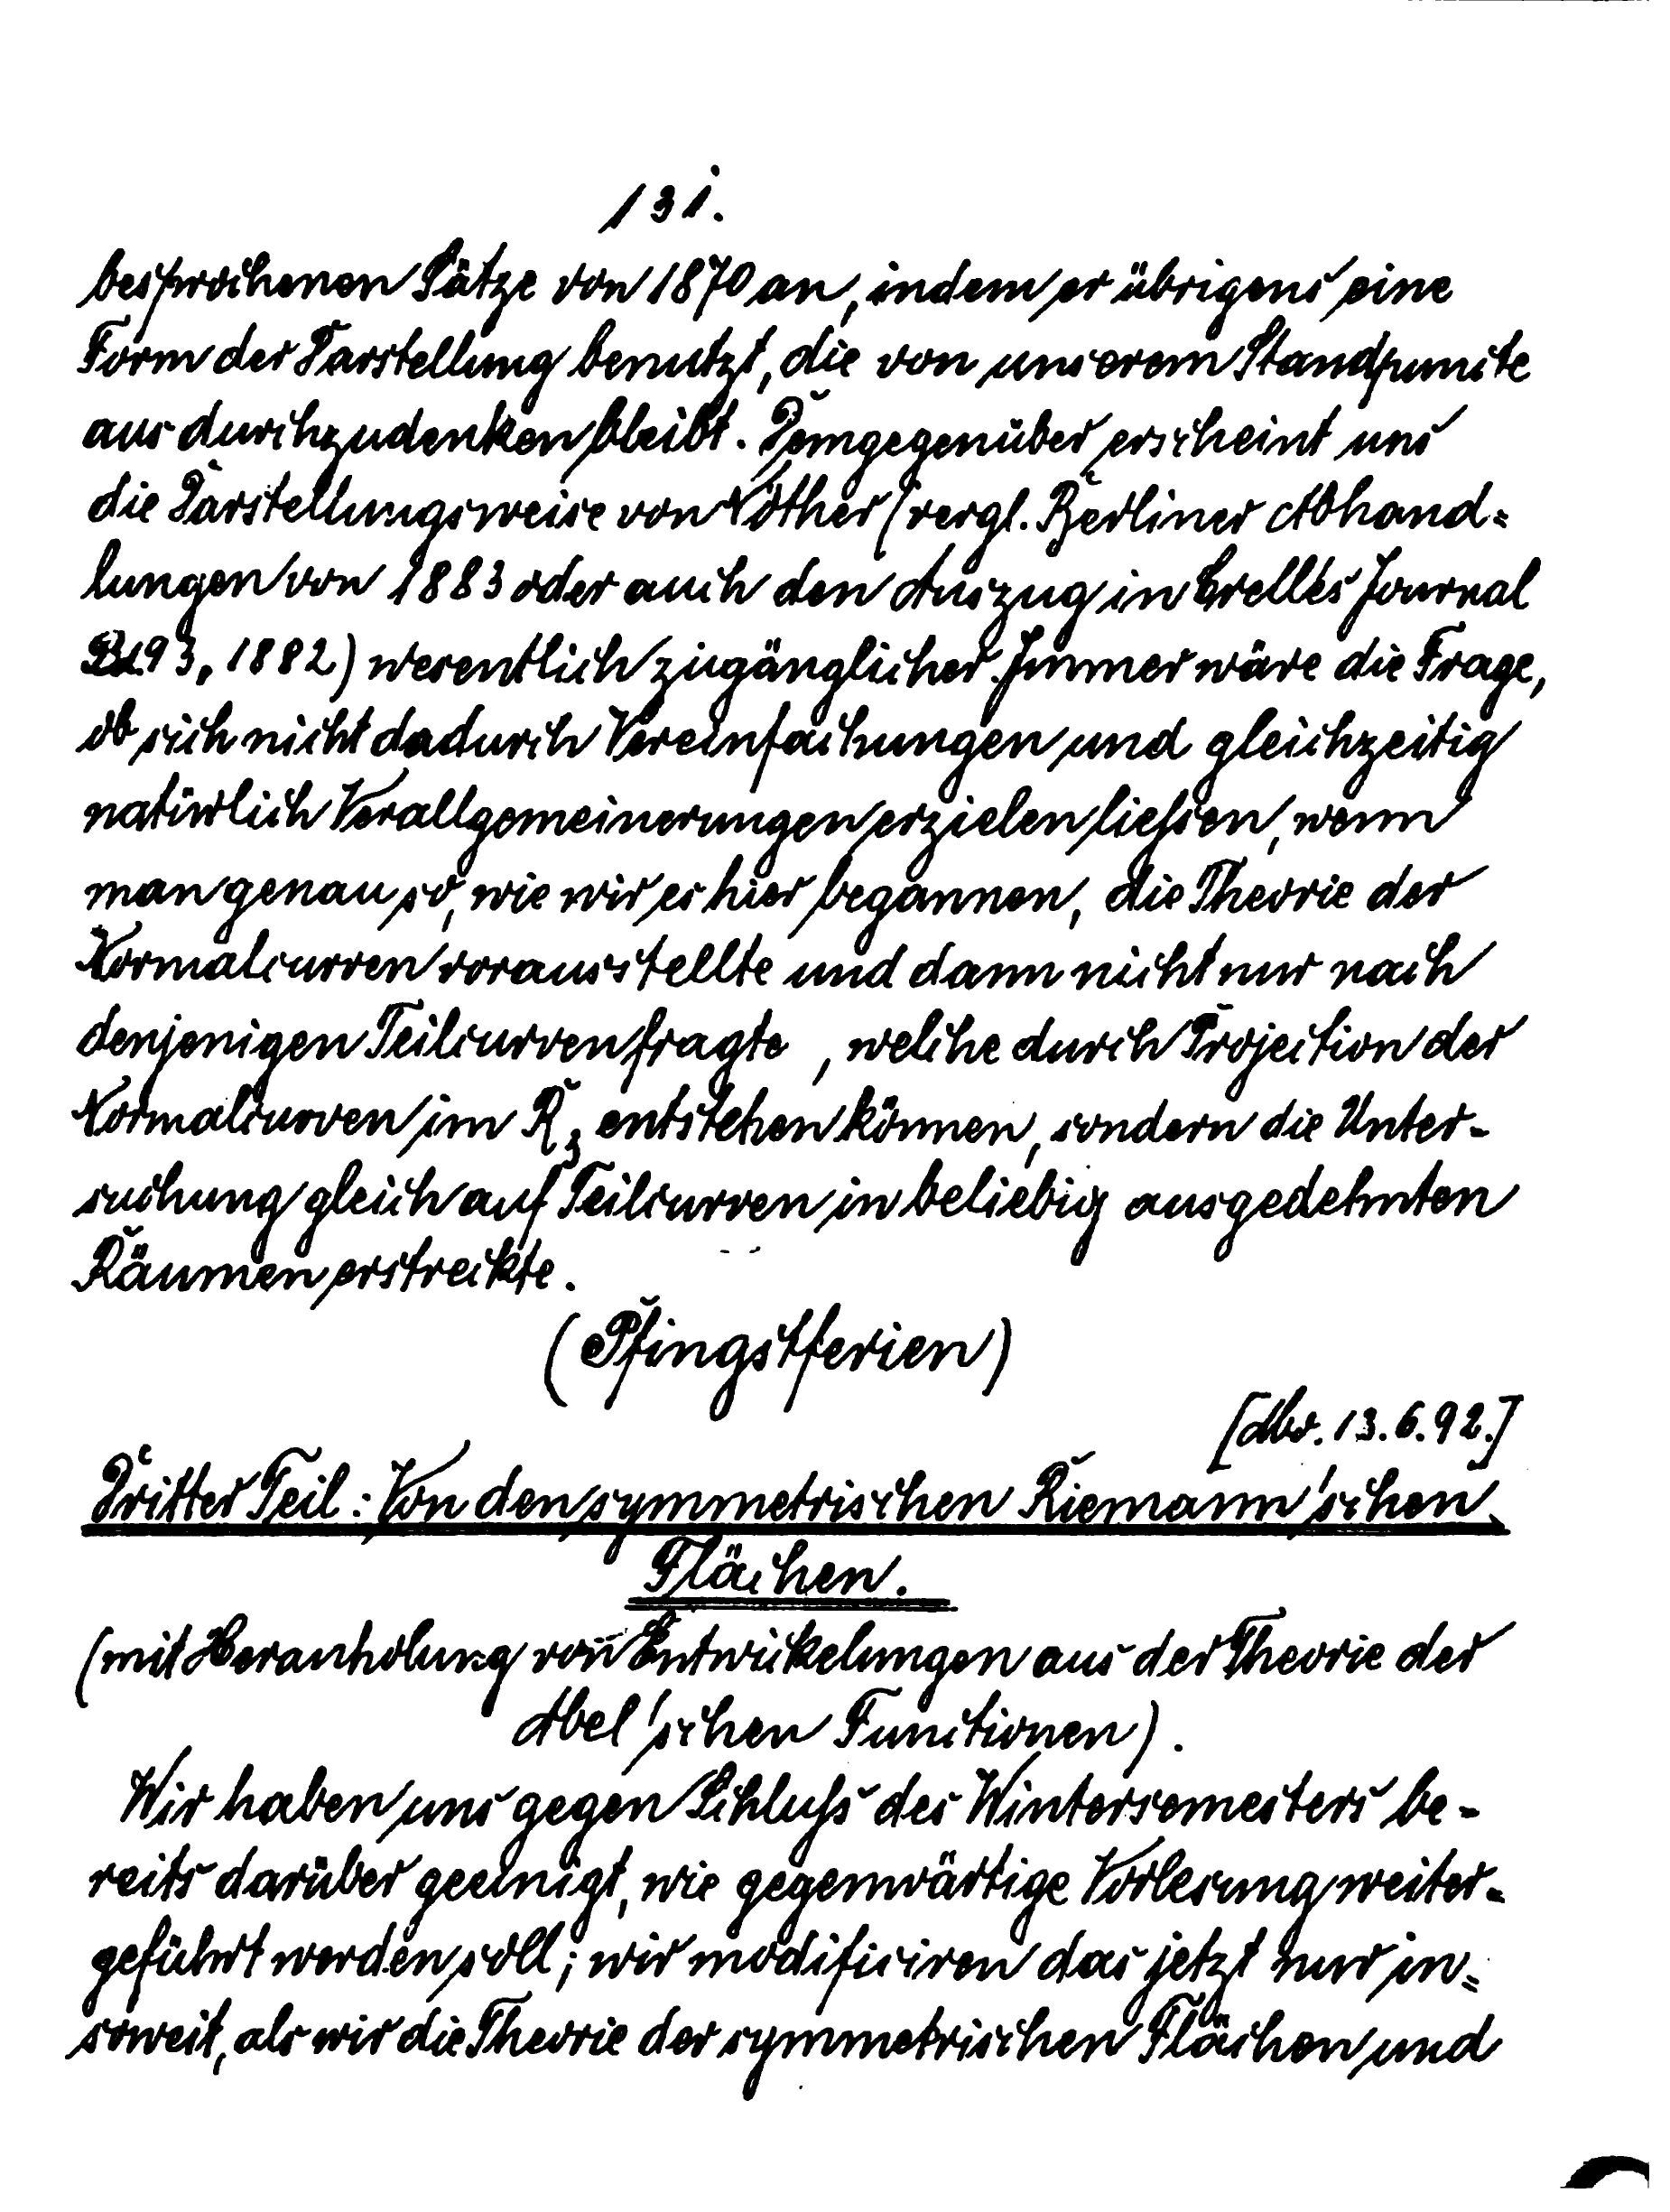 131.
besprochenen Sätze von 1870 an, indem er übrigens eine
Form der Darstellung benutzt, die von unserem Standpuncte
aus durchzudenken bleibt. Demgegenüber erscheint uns
die Darstellungsweise von Nöther (vergl. Berliner Abhand=
lungen von 1883 oder auch den Auszug in Crelle's Journal
Bd. 93, 1882) wesentlich zugänglicher. Immer wäre die Frage,
ob sich nicht dadurch Vereinfachungen und gleichzeitig
natürlich Verallgemeinerungen erzielen liessen, wenn
man genau so, wie wir es hier begannen, die Theorie der
Normalcurven vorausstellte und dann nicht nur nach
denjenigen Teilcurven fragte, welche durch Projection der
Normalcurven im R₃ entstehen können, sondern die Unter-
suchung gleich auf Teilcurven in beliebig ausgedehnten
Räumen erstreckte.
(Pfingstferien)
[Mo. 13.6.92.]
Dritter Teil: Von den symmetrischen Riemann'schen
Flächen.
(mit Heranholung von Entwickelungen aus der Theorie der
Abel'schen Functionen).
Wir haben uns gegen Schluss des Wintersemesters be-
reits darüber geeinigt, wie gegenwärtige Vorlesung weiter-
geführt werden soll; wir modificiren das jetzt nur in=
soweit, als wir die Theorie der symmetrischen Flächen und